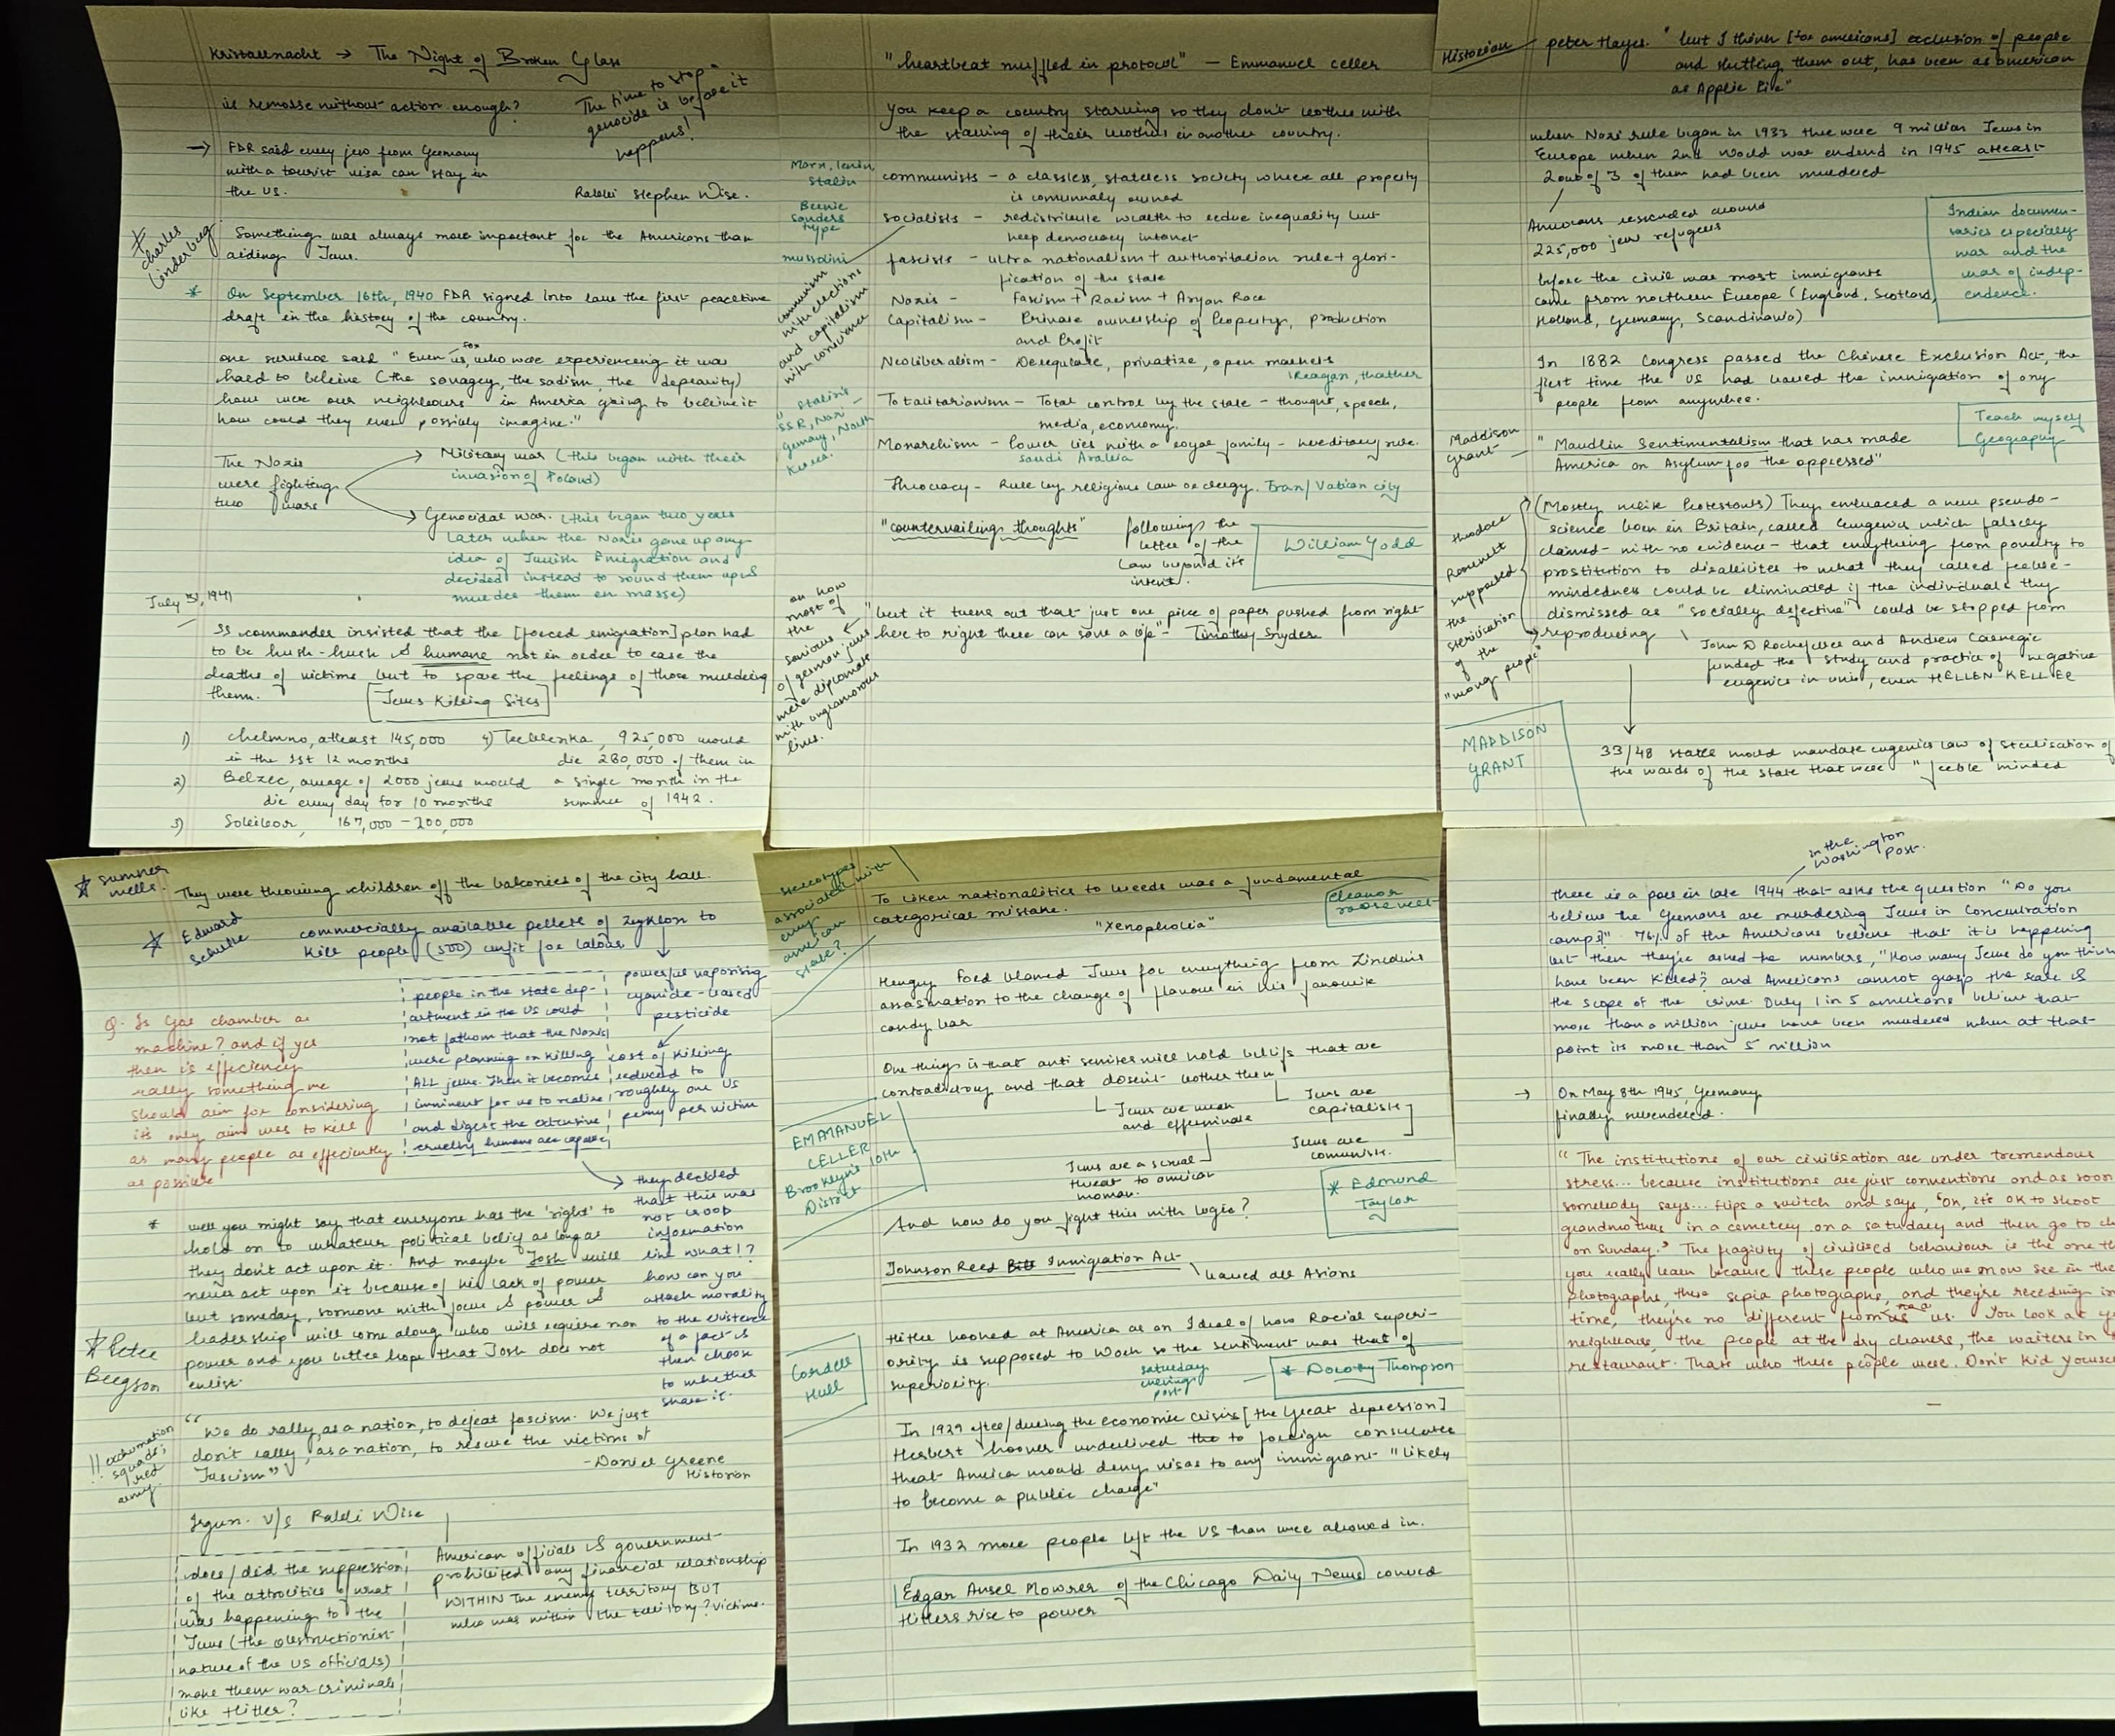 Kristallnacht → The Night of Broken Glass
is remorse without action enough?
"The time to stop
genocide is before it
happens!
Rabbi Stephen Wise.
→ FDR said every jew from Germany
with a tourist visa can stay in
the US.
* Charles Linderburg
Something was always more important for the Americans than
aiding Jews.
* On September 16th, 1940 FDR signed into law the first peacetime
draft in the history of the country.
one survivor said "Even for us, who were experiencing it was
hard to believe (the savagery, the sadism, the depravity)
how were our neighbours in America going to believe it
how could they even possibly imagine."
The Nazis
were fighting
two wars
→ Military war (this began with their
invasion of Poland)
→ Genocidal war. (this began two years
later when the Nazis gave up any
idea of Jewish Emigration and
decided instead to round them up &
murder them en masse)
July 31, 1941
SS commander insisted that the [forced emigration] plan had
to be hush-hush & humane not in order to ease the
deaths of victims but to spare the feelings of those murdering
them.
Jews Killing Sites
1) Chelmno, atleast 145,000
in the 1st 12 months
2) Belzec, average of 2000 jews would
die every day for 10 months
3) Sobibor, 167,000 - 200,000
4) Treblenka, 925,000 would
die 280,000 of them in
a single month in the
summer of 1942.
"heartbeat muffled in protocol" — Emmanuel celler
You keep a country starving so they don't bother with
the starving of their brothers in another country.
Marx, lenin
Stalin
communists - a classless, stateless society where all property
is communaly owned
Bernie
Sanders
type
socialists - redistribute wealth to reduce inequality but
keep democracy intact
communism
with elections
and capitalism
with conscience
mussolini
fascists - ultra nationalism + authoritarian rule + glori-
fication of the state
Nazis - Fascism + Racism + Aryan Race
Capitalism - Private ownership of Property, production
and Profit
Neoliberalism - Deregulate, privatize, open markets
Reagan, thather
"Stalin's
SSR, Nazi -
Germany, North
Korea.
Totalitarianism - Total control by the state - thought, speech,
media, economy.
Monarchism - Power lies with a royal family - hereditary rule.
Saudi Arabia
Theocracy - Rule by religious law or clergy. Iran/Vatican city
"countervailing thoughts"
following the
letter of the
law beyond it's
intent.
William Dodd
on how
most of
the
saviours
of german jews
were diplomats
with unglamorous
lives.
"but it turns out that just one piece of paper pushed from right
here to right there can save a life" - Timothy Snyder
Historian — peter Hayes. "but I think [for americans] exclusion of people
and shutting them out, has been as american
as Apple Pie"
when Nazi rule began in 1933 there were 9 million Jews in
Europe when 2nd World war endend in 1945 atleast
2 out of 3 of them had been murdered
Americans rescinded around
225,000 jew refugees
Indian documen-
taries especially
war and the
war of indep-
endence.
before the civil war most immigrants
came from northern Europe (England, Scotland,
Holland, Germany, Scandinavia)
In 1882 Congress passed the Chinese Exclusion Act, the
first time the US had baned the immigration of any
people from anywhere.
Teach myself
Geography
Maddison
Grant —
"Maudlin Sentimentalism that has made
America an Asylum for the oppressed"
theodore
Roosevelt
supported
the
sterilization
of the
"wrong people"
(Mostly white Protestants) They embraced a new pseudo-
science born in Britain, called Eugenics which falsely
claimed - with no evidence - that everything from poverty to
prostitution to disabilities to what they called feeble-
mindedness could be eliminated if the individuals they
dismissed as "socially defective" could be stopped from
reproducing
John D Rockefeller and Andrew Carnegie
funded the study and practice of negative
eugenics in unis, even HELLEN KELLER
MADDISON
GRANT
33/48 states would mandate eugenics law of sterilisation of
the wards of the state that were "feeble minded
* Sumner
wells.
They were throwing children off the balconies of the city hall.
* Edward
Schulte
commercially available pellets of Zyklon to
kill people (500) unfit for labour
powerful vaporising
cyanide-based
pesticide
cost of killing
reduced to
roughly one US
penny per victim
people in the state dep-
artment in the US could
not fathom that the Nazis
were planning on killing
ALL jews. Then it becomes
imminent for us to realize
and digest the extensive
cruelty humans are capable
Q. Is Gas chamber a
machine? and if yes
then is efficiency
really something we
should aim for considering
it's only aim was to kill
as many people as efficiently
as possible
→ they decided
that this was
not good
information
like what!?
how can you
attach morality
to the existence
of a fact &
then choose
to whether
share it.
* well you might say that everyone has the 'right' to
hold on to whatever political belief as long as
they don't act upon it. And maybe Josh will
never act upon it because of his lack of power
but someday, someone with focus & power &
leadership will come along who will require man
power and you better hope that Josh does not
enlist.
* Peter
Bergson
!! exhumation
squads,
red
army.
"We do rally, as a nation, to defeat fascism. We just
don't rally, as a nation, to rescue the victims of
Fascism"
- Daniel Greene
Historian
Irgun. V/S Rabbi Wise
American officials & government
prohibited any financial relationship
WITHIN the enemy territory BUT
who was within the territory? victims.
does/did the suppression
of the attrocities of what
was happening to the
Jews (the obstructionist
nature of the US officials)
make them war criminals
like Hitler?
stereotypes
associated with
every
american
state?
To liken nationalities to weeds was a fundamental
categorical mistake.
Eleanor
roosevelt
"Xenophobia"
Hengry Ford blamed Jews for everything from Lincoln's
assasination to the change of flavour in his favourite
candy bar
One thing is that anti semites will hold beliefs that are
contradictory and that dosen't bother them
Jews are weak
and effeminate
Jews are a sexual
threat to american
woman.
Jews are
capitalists
Jews are
comunists.
EMMANUEL
CELLER
Brooklyn's 10th
District
* Edmund
Taylor
And how do you fight this with logic?
Johnson Reed Bill Immigration Act
baned all Asians
Hitler looked at America as an Ideal of how Racial superi-
ority is supposed to work so the sentiment was that of
superiority.
Saturday
evening
post
* Dorothy Thompson
Cordell
Hull
In 1929 after/during the economic crisis [the Great depression]
Herbert hoover underlived the to foreign consulates
that America would deny visas to any immigrant "likely
to become a public charge"
In 1932 more people left the US than were allowed in.
Edgar Ansel Mowrer of the Chicago Daily News coverd
Hitlers rise to power
in the
Washington
Post.
there is a poll in late 1944 that asks the question "Do you
believe the Germans are murdering Jews in Concentration
camps" 76% of the Americans believe that it is happening
but then they're asked the numbers, "How many Jews do you think
have been Killed? and Americans cannot grasp the scale &
the scope of the crime. Only 1 in 5 americans believe that
more than a million jews have been murdered when at that
point its more than 5 million
→ On May 8th 1945, Germany
finally surrendered.
"The institutions of our civilisation are under tremendous
stress... because institutions are just conventions and as soon
somebody says... flips a switch and says, "Oh, it's OK to shoot
grandmothers in a cemetery on a saturday and then go to ch
on Sunday." The fragility of civilised behaviour is the one th
you really learn because these people who we now see in the
photographs, these sepia photographs, and they're receding in
time, they're no different from us. You look at yo
neighbours, the people at the dry cleaners, the waiters in
restaurant. Thats who these people were. Don't kid yourse